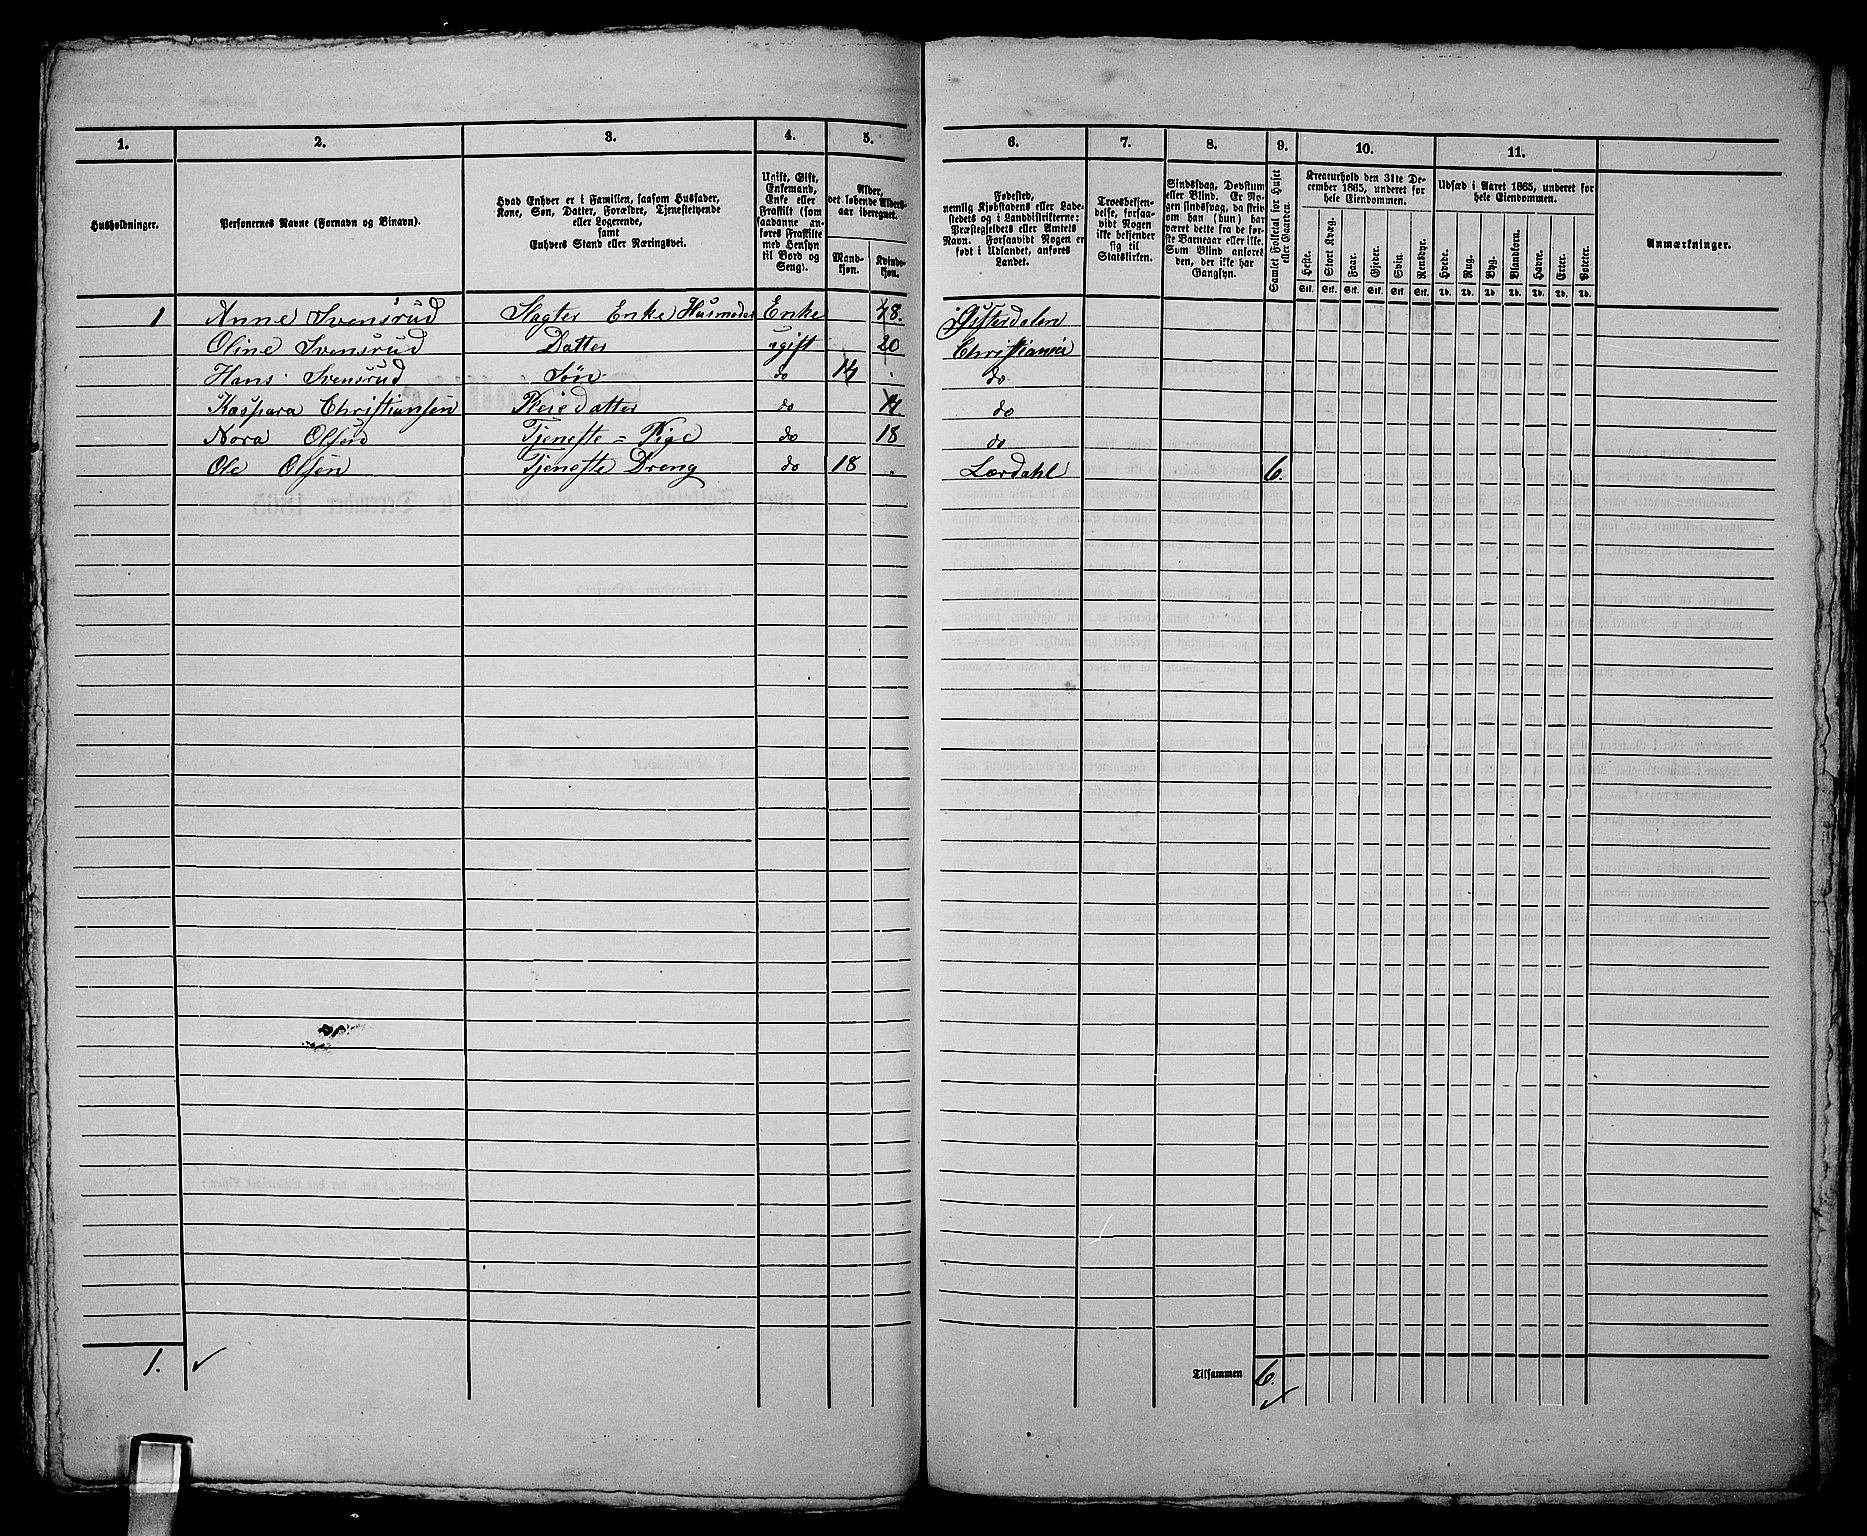 1. 2. 3. 4. 5. 6. 7. 8. 9. 10. 11.
Husholdninger.
Personernes Navne (Fornavn og Binavn).
Hvad Enhver er i Familien, saasom Husfader,
Kone, Søn, Datter, Forældre, Tjenestetyende
eller Logerende,
samt
Enhvers Stand eller Næringsvei.
Ugift, Gift,
Enkemand,
Enke eller
Fraskilt (som
saadanne an-
føres Fraskilte
med Hensyn
til Bord og
Seng).
Alder,
det løbende Alders-
aar iberegnet.
Mand-
kjøn.
Kvinde-
kjøn.
Fødested,
nemlig Kjøbstadens eller Lade-
stedets og i Landdistrikterne:
Præstegjeldets eller Amtets
Navn. Forsaavidt Nogen er
født i Udlandet, anføres
Landet.
Troesbekjen-
delse, forsaa-
vidt Nogen
ikke bekjender
sig til
Statskirken.
Sindssvag, Døvstum
eller Blind. Er No-
gen sindssvag, da skriv
om han (hun) har
været dette fra de før-
ste Barneaar eller ikke.
Som Blind anføres
den, der ikke har
Gangsyn.
Samlet Folketal for Huset
eller Gaarden.
Kreaturhold den 31te De-
cember 1865, underet for
hele Eiendommen.
Heste. Stort Kvæg. Faar. Gjeder. Svin. Rensdyr.
Stk. Stk. Stk. Stk. Stk. Stk.
Udsæd i Aaret 1865, underet for
hele Eiendommen.
Hvede. Rug. Byg. Blandkorn. Havre. Erter. Poteter.
Td. Td. Td. Td. Td. Td. Td.
Anmærkninger.
1 Anne Svensrud Enke Husmoder Enke 48. Østerdalen
Oline Svensrud Datter ugift 20 Christiania
Hans Svensrud Søn do 14 do
Kaspara Christiansen Pleiedatter do do
Nora Olsen Tjeneste=Pige do 18 do
Ole Olsen Tjeneste Dreng do 18 Lærdahl 6.
1.
Tilsammen 6.